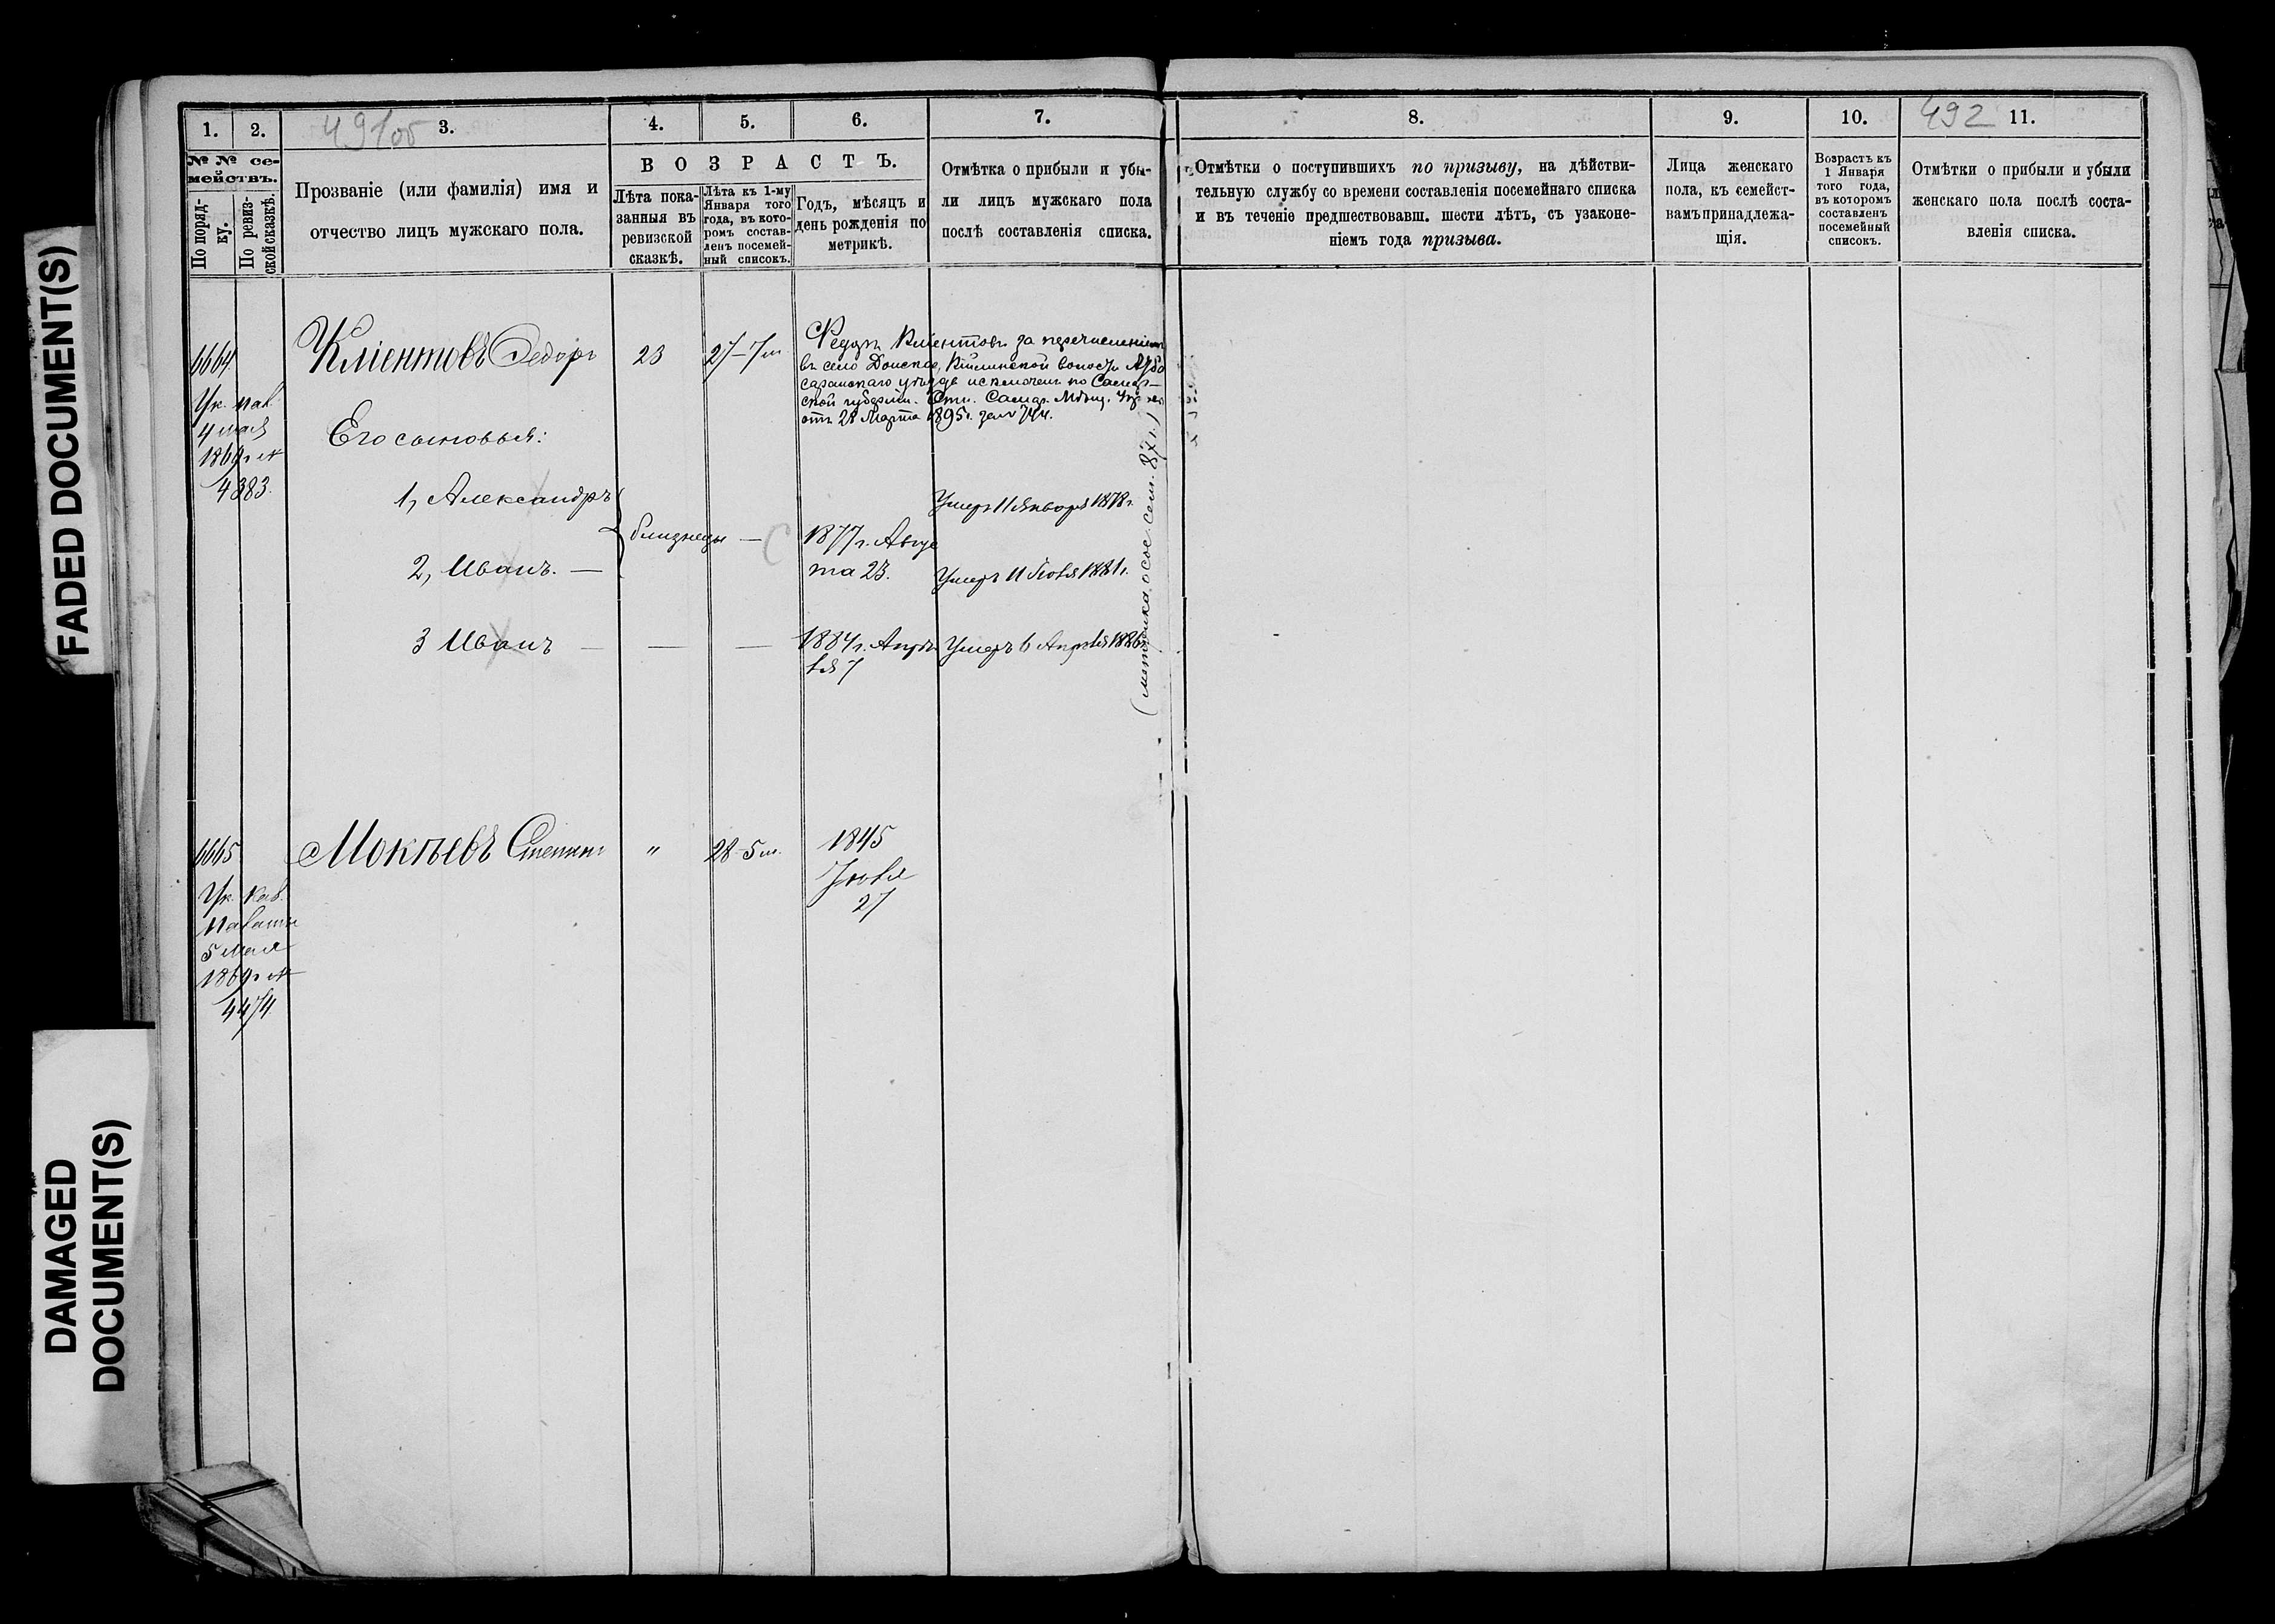 FADED DOCUMENT(S)
DAMAGED
DOCUMENT(S)
491об
492
1.
2.
3.
4.
5.
6.
7.
8.
9.
10.
11.
№ № се-
мействъ.
По поряд-
ку.
По ревиз-
ской сказкѣ.
Прозваніе (или фамилія) имя и
отчество лицъ мужскаго пола.
ВОЗРАСТЪ.
Лѣта пока-
занныя въ
ревизской
сказкѣ.
Лѣта къ 1-му
Января того
года, въ кото-
ромъ состав-
ленъ посемей-
ный списокъ.
Годъ, мѣсяцъ и
день рожденія по
метрикѣ.
Отмѣтка о прибыли и убы-
ли лицъ мужскаго пола
послѣ составленія списка.
Отмѣтки о поступившихъ по призыву, на дѣйстви-
тельную службу со времени составленія посемейнаго списка
и въ теченіе предшествовавш. шести лѣтъ, съ узаконе-
ніемъ года призыва.
Лица женскаго
пола, къ семейст-
вамъ принадлежа-
щія.
Возрастъ къ
1 Января
того года,
въ которомъ
составленъ
посемейный
списокъ.
Отмѣтки о прибыли и убыли
женскаго пола послѣ соста-
вленія списка.
6664
Ук. пал.
4 мая
1869 г №
4383.
Кліентовъ Федоръ
23
27-7м
Федоръ Кліентовъ за перечисленіемъ
въ село Донское, волости
уѣзда исключенъ по Самар-
ской губерніи. Отн. Самар. Мѣщ. Упр.
отъ 28 Марта 1895 г. за № 744.
Его сыновья:
1, Александръ
близнецы —
1877 г. Авгус
та 23.
Умеръ 11 Января 1878 г.
2, Иванъ. —
Умеръ 11 Іюля 1881 г.
3 Иванъ — — —
1884 г. Апрѣ
ля 7
Умеръ 6 Апрѣля 1886
6665
Ук. Каз.
Палаты
5 Мая
1869 г №
4474
Мокѣевъ Степанъ
"
28-5м.
1845
Іюля
27